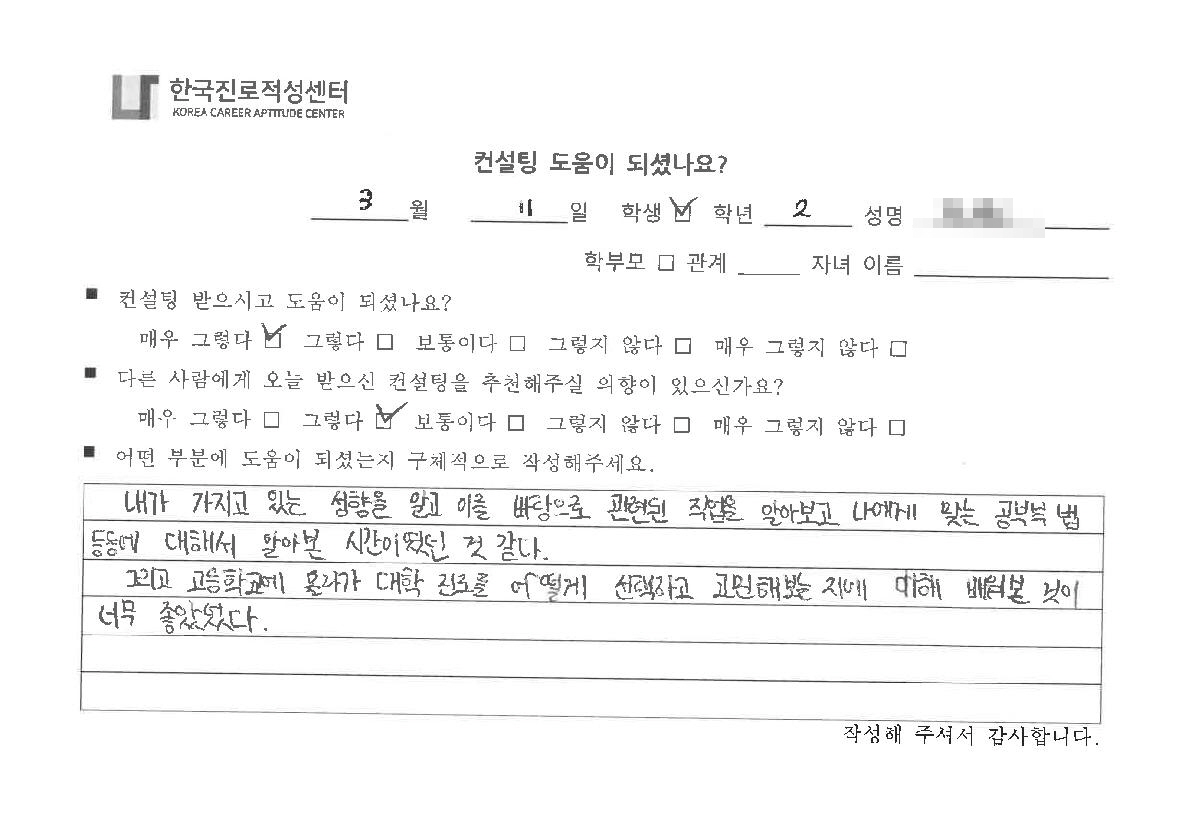 한국진로적성센터
KOREA CAREER APTITUDE CENTER
컨설팅 도움이 되셨나요?
3 월 11 일 학생 ☑ 학년 2 성명
학부모 □ 관계 자녀 이름
■ 컨설팅 받으시고 도움이 되셨나요?
매우 그렇다 ☑ 그렇다 □ 보통이다 □ 그렇지 않다 □ 매우 그렇지 않다 □
■ 다른 사람에게 오늘 받으신 컨설팅을 추천해주실 의향이 있으신가요?
매우 그렇다 □ 그렇다 ☑ 보통이다 □ 그렇지 않다 □ 매우 그렇지 않다 □
■ 어떤 부분에 도움이 되셨는지 구체적으로 작성해주세요.
내가 가지고 있는 성향을 알고 이를 바탕으로 관련된 직업을 알아보고 나에게 맞는
등등에 대해서 알아본 시간이었던 것 같다.
그리고 고등학교에 올라가 대학 진로를 어떻게 선택하고 고민해보는지에 배워본 것이
너무 좋았었다.
작성해 주셔서 감사합니다.